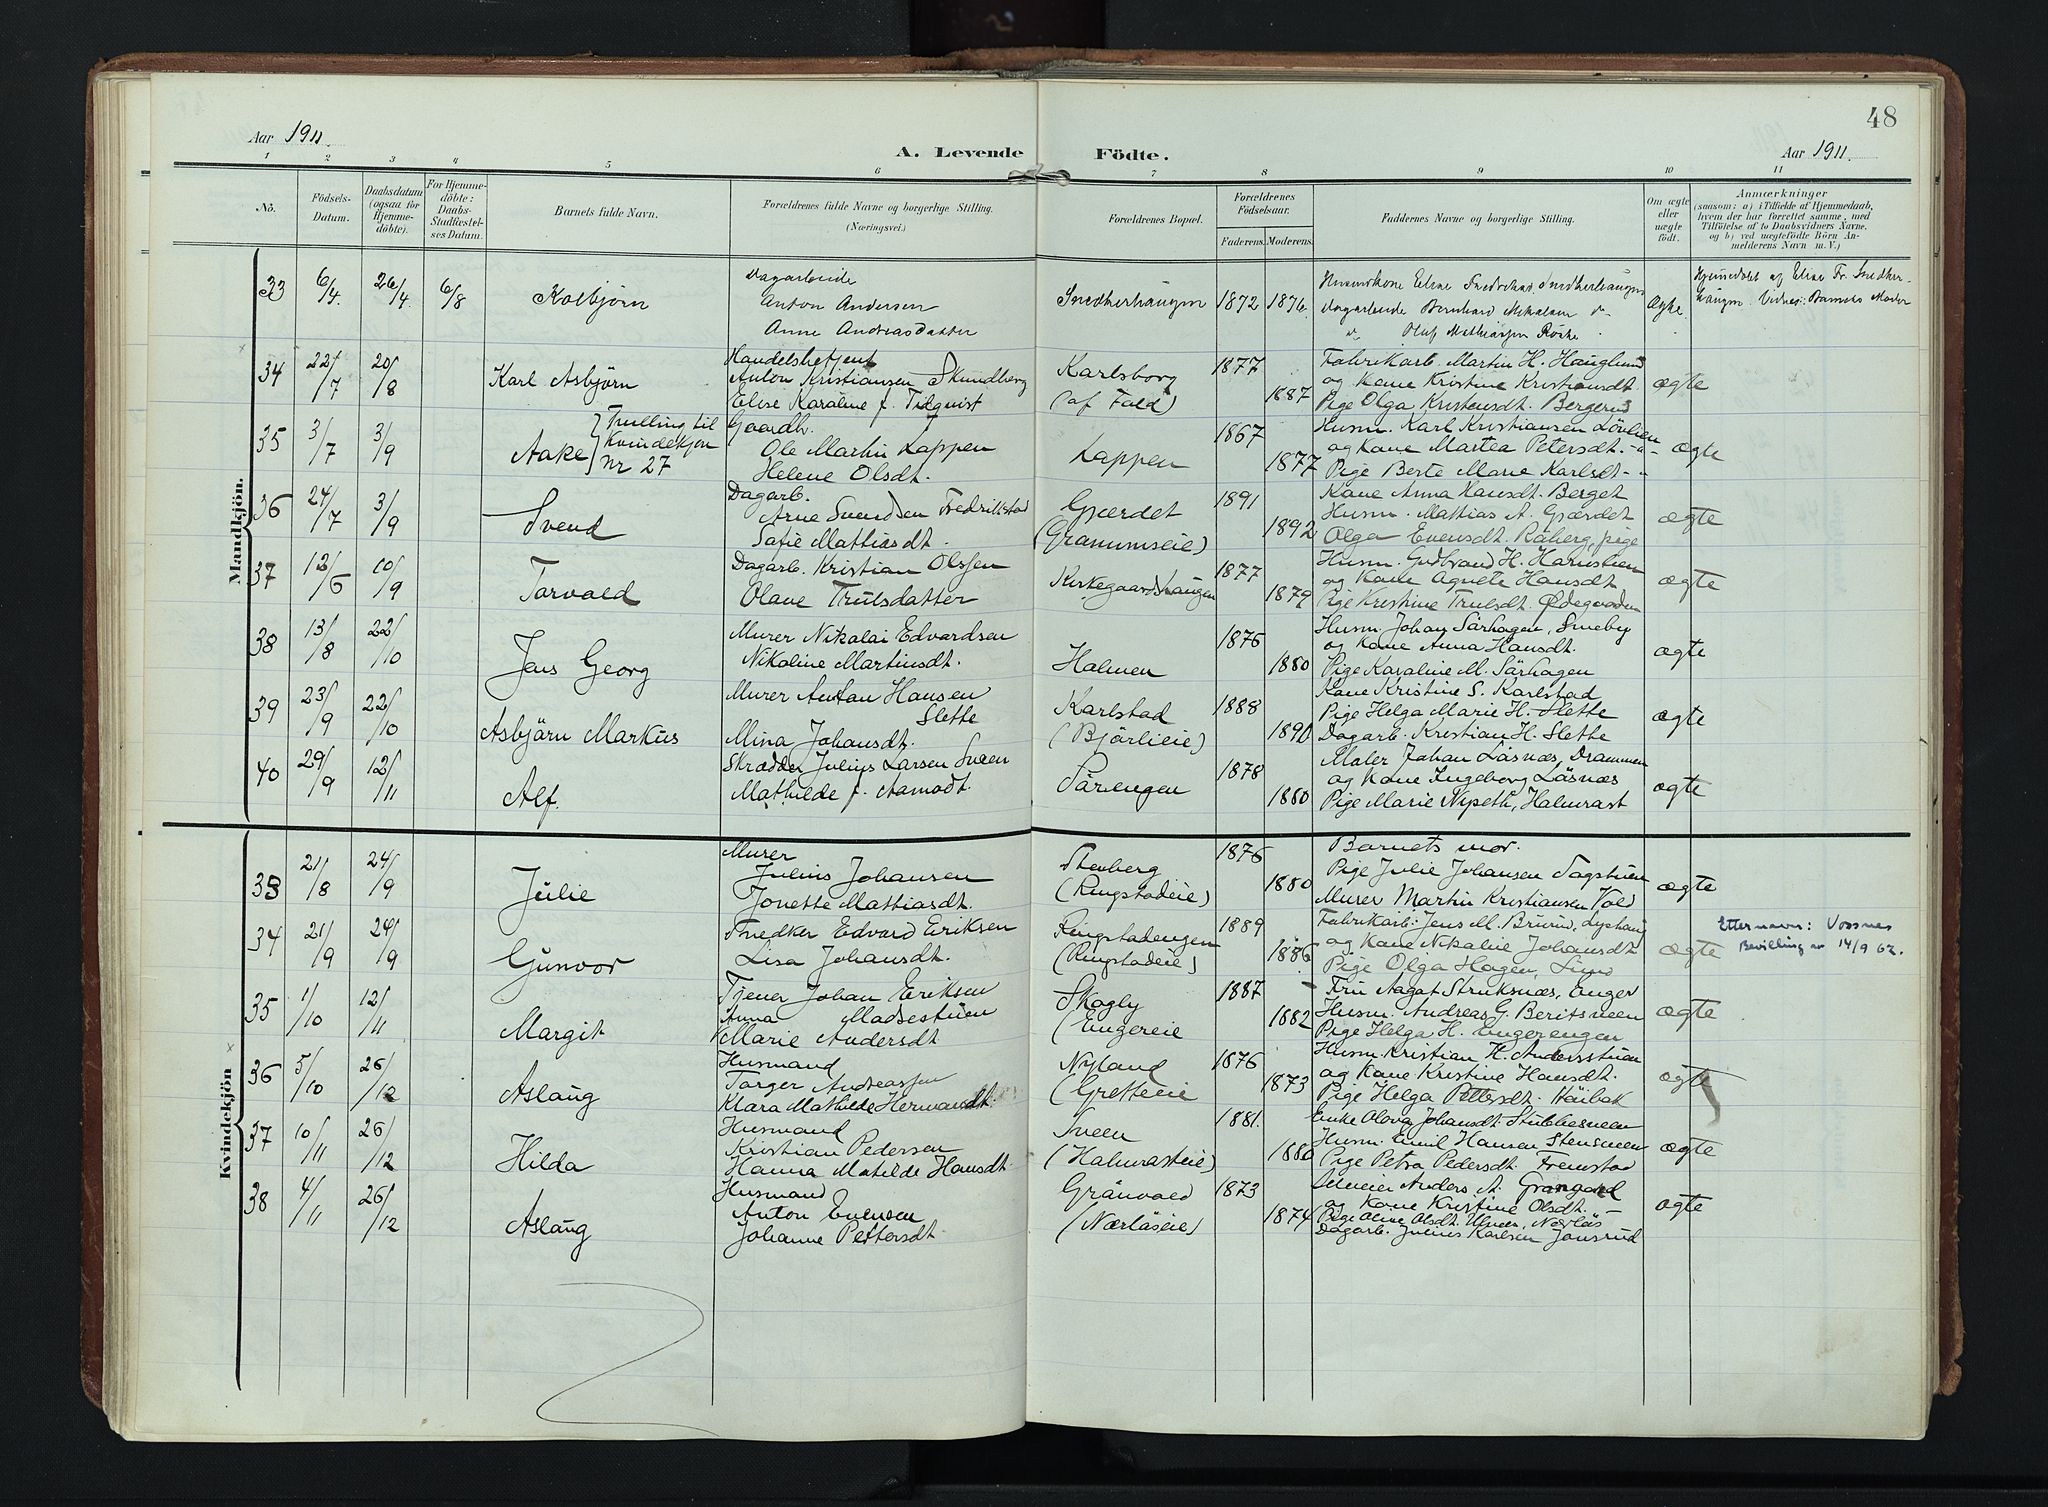 48
Aar 1911.
A. Levende Födte.
Aar 1911.
1 2 3 4 5 6 7 8 9 10 11
No.
Födsels-
Datum.
Daabsdatum
(ogsaa for
Hjemme-
döbte).
For Hjemme-
döbte:
Daabs-
Stadfæstel-
ses Datum.
Barnets fulde Navn.
Forældrenes fulde Navne og borgerlige Stilling.
(Næringsvei.)
Forældrenes Bopæl.
Forældrenes
Födselsaar.
Faderens. Moderens.
Faddernes Navne og borgerlige Stilling.
Om ægte
eller
uægte
födt.
Anmærkninger
(saasom: a) i Tilfælde af Hjemmedaab,
hvem der har forrettet samme, med
Tilföielse af to Daabsvidners Navne,
og b) ved uægtefödte Börn An-
melderens Navn m. V.)
Mandkjön.
33 6/4. 26/4 6/8 Kolbjörn
Dagarbeide
Anton Andersen
Anne Andreasdatter
Snedkerhaugen 1872 1876.
Husmandskone Eline Fredriksd. Snedkerhaugen
Dagarbeide Bernhard Nikolaisen
Olaf Mathiassen
Ægte.
Hjemmedöbt af Eline Fr. Snedker-
haugen. Vidner: Barnets Moder
34 22/7 20/8 Karl Asbjörn
Handelsbetjent
Anton Kristiansen Skundberg
Elise Karoline f. Tidqvist
Karlsborg
(af Fald)
1877
1887
Fabrikarb. Martin H. Hauglund
og Kone Kristine Kristiansdt.
Pige Olga Kristensdt. Bergerud
ægte
35 3/7 3/9 Aake
Trulling til
Kvindekjön
Nr 27
Gaardbr.
Ole Martin Lappen
Helene Olsdt.
Lappen
1867
1877
Husm. Karl Kristiansen Lövlien
og Kone Martea Petersdt. -"-
Pige Berte Marie Karlsdt - "
ægte
36 24/7 3/9 Svend
Dagarb.
Arne Svendsen Fredrikstad
Sofie Mattiasdt.
Gjærdet
(Grammseie)
1891
1892
Kone Anna Hansdt. Berget
Husm. Mattias A. Gjærdet
Olga Evensdt. Raberg, pige
ægte
37 12/6 10/9 Torvald
Dagarb. Kristian Olssen
Olave Trulsdatter
Kirkegaardshaugen
1877
1879
Husm. Gudbrand H.
og Kone Agnete Hansdt
Pige Kristine Trulsdt. Ödegaarden
ægte
38 13/8 22/10 Jens Georg
Murer Nikolai Edvardsen
Nikoline Martinsdt.
Holmen
1876
1880
Husm. Johan Sörhagen, Smeby
og Kone Anna Hansdt.
Pige Karoline M. Sörhagen
ægte
39 23/9 22/10 Asbjörn Markus
Murer Anton Hansen
Slette
Mina Johansdt.
Karlstad
(Bjørlieie)
1888
1890
Kone Kristine S. Karlstad
Pige Helga Marie H. Slette
Dagarb. Kristian H. Slette
ægte
40 29/9 12/11 Alf.
Skrædder Julius Larsen Sveen
Mathilde f. Aamodt.
Sörengen
1878
1880
Maler Johan Lösnæs, Drammen
og Kone Ingeborg Lösnæs
Pige Marie Nyseth, Halmrast
ægte
Kvindekjön
33 21/8 24/9 Julie
Murer
Julius Johansen
Jonette Mattiasdt.
Stenberg
(Ringstadeie)
1876
1880
Barnets mor.
Pige Julie Johansen Sagstuen
Murer Martin Kristiansen Vold
ægte
34 21/9 24/9 Gunvor
Snedker Edvard Eriksen
Lisa Johansdt.
Ringstadengen
(Ringstadeie)
1889
1886
Fabrikarb: Jens M. Brurud, Lyshaug
og Kone Nikoline Johansdt
Pige Olga Hagen, Lund
ægte
Etternavn: Vossnes
Bevilling av 14/9 62.
35 1/10 12/11 Margit
Tjener Johan Eriksen
Anna Madsestuen
Marie Andersdt
Skogly
(Engereie
1887
1882
Fru Aagot Struksnæs, Enger
Husm. Andreas G. Beritsveen
Pige Helga H. Engerengen
ægte
36 5/10 26/12 Aslaug
Husmand
Torger Andreassen
Klara Mathilde Hermandt.
Nyland
(Gretteeie
1876
1873
Husm. Kristian H. Andersstuen
og Kone Kristine Hansdt.
Pige Helga Pettersdt. Höibak
ægte
37 10/11 26/12 Hilda
Husmand
Kristian Pedersen
Hanna Matilde Hansdt.
Sveen
(Halmrasteie)
1881.
1880
Enke Olava Johansdt. Stubbesveen
Husm. Emil Hansen Stensveen
Pige Petra Pedersdt. Fremstad
ægte
38 4/11 26/12 Aslaug
Husmand
Anton Evensen
Johanne Pettersdt.
Grönvold
(Nærlöseie)
1873
1874
Selveier Anders A. Grangaard
og Kone Kristine Olsdt. -
Pige Oline Olsdt. Nærlös
Dagarb. Julius Karlsen Jonsrud
ægte